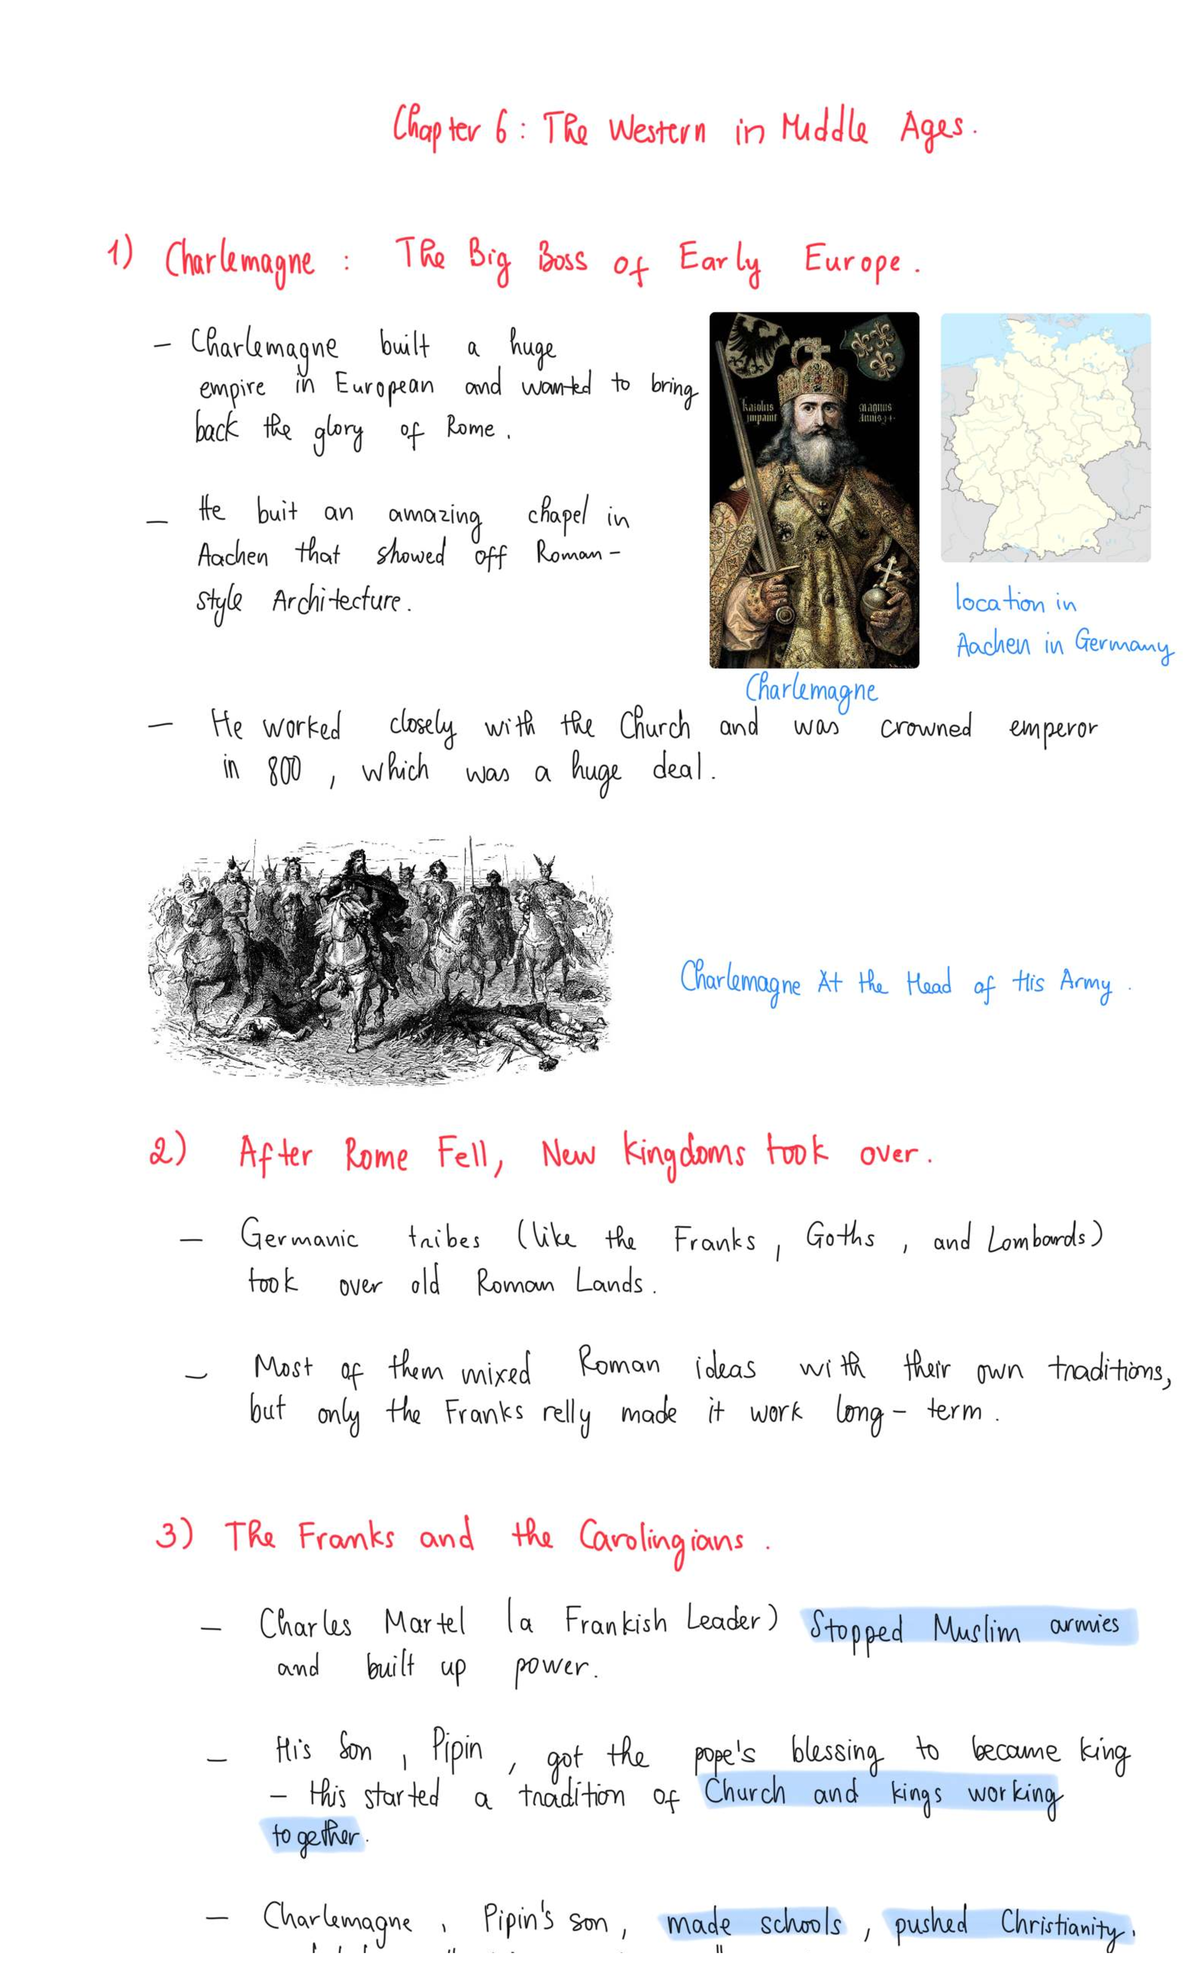 Chapter 6: The Western in Middle Ages.
1) Charlemagne : The Big Boss of Early Europe.
– Charlemagne built a huge
empire in European and wanted to bring
back the glory of Rome.
– He buit an amazing chapel in
Aachen that showed off Roman-
style Architecture.
karolus magnus
location in
Aachen in Germany
Charlemagne
– He worked closely with the Church and was crowned emperor
in 800, which was a huge deal.
Charlemagne At the Head of His Army.
2) After Rome Fell, New kingdoms took over.
– Germanic tribes (like the Franks, Goths, and Lombards)
took over old Roman Lands.
– Most of them mixed Roman ideas with their own traditions,
but only the Franks relly made it work long-term.
3) The Franks and the Carolingians.
– Charles Martel (a Frankish Leader) Stopped Muslim armies
and built up power.
– His Son, Pipin, got the pope's blessing to became king
– this started a tradition of Church and kings working
together.
– Charlemagne, Pipin's son, made schools, pushed Christianity,